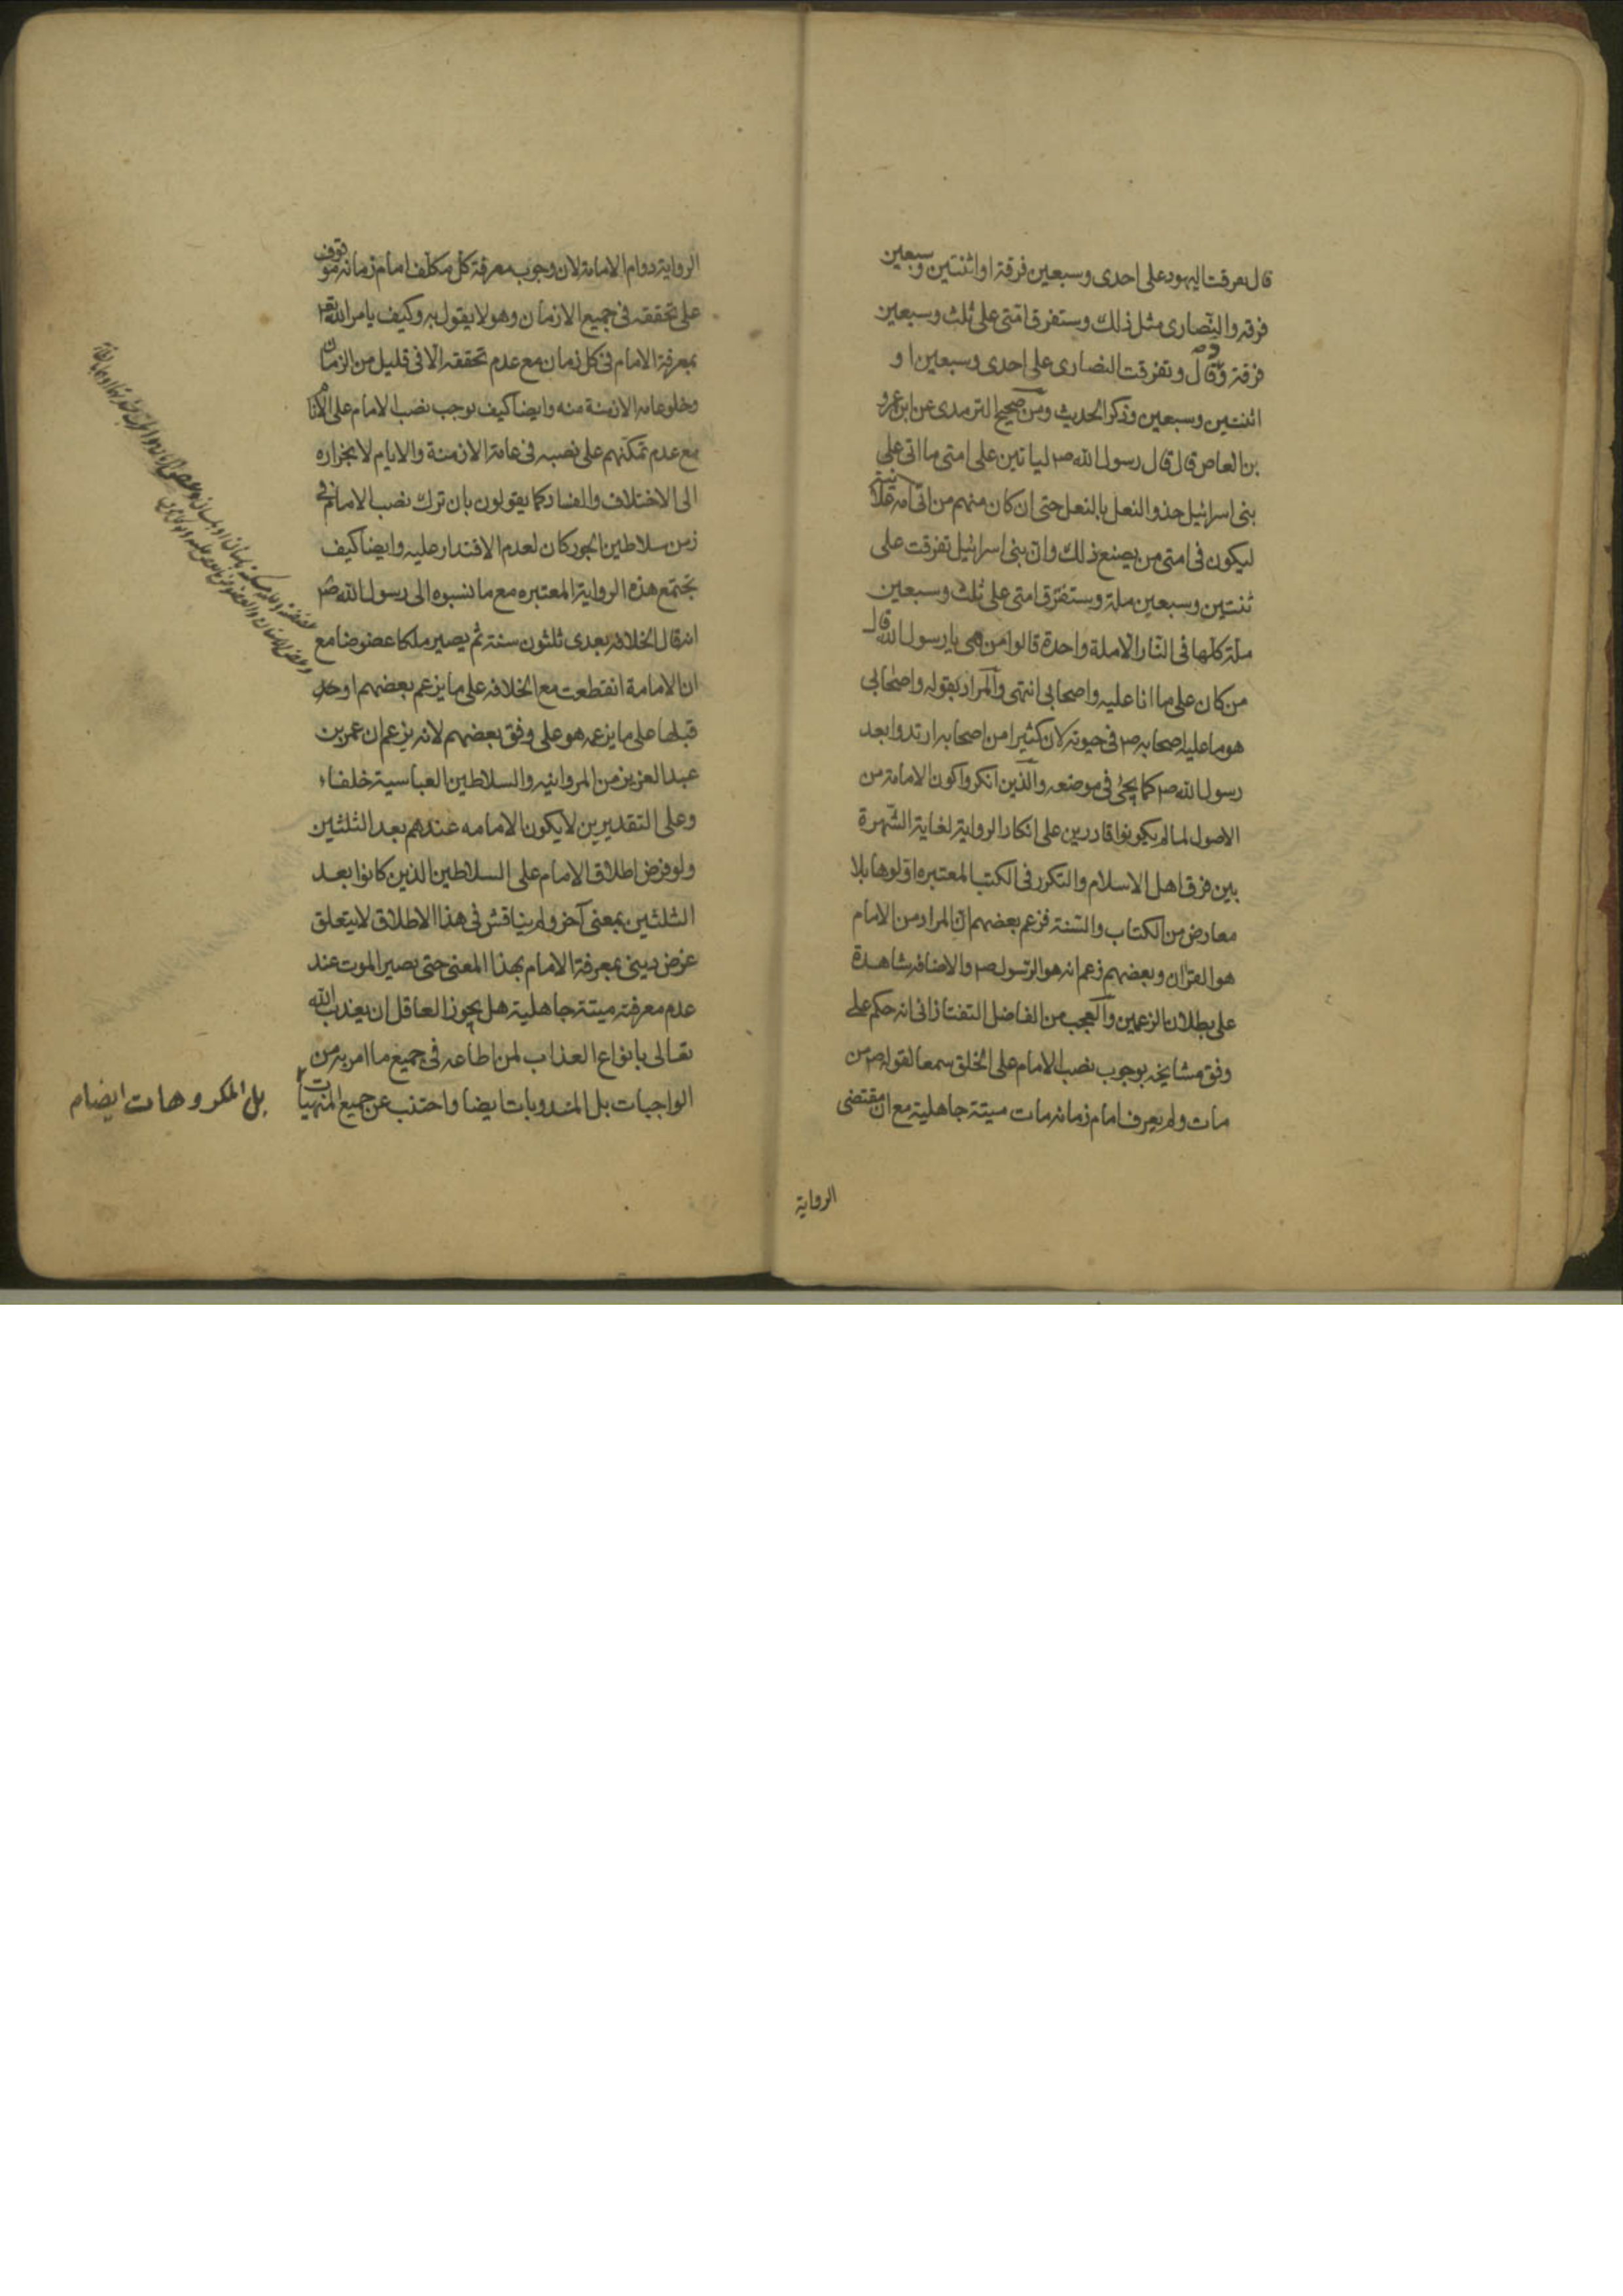 قال تفرقت اليهود على احدى وسبعين فرقة او اثنتين وسبعين
فرقه والنّصارى مثل ذلك وستفرق امّتى على ثلث وسبعين
فرقة وقال وتفرقت النصارى على احدى وسبعين او
اثنتين وسبعين وذكر الحديث ومن صحيح الترمدى عن ابن عمرو
بن العاص قال قال رسول الله ص لياتين على امتى ما اتى على
بنى اسرائيل حذو النعل بالنعل حتى ان كان منهم من اتى امه علانية
ليكون فى امتى من يصنع ذلك وان بنى اسرائيل تفرقت على
ثنتين وسبعين ملة وستفترق امتى على ثلث وسبعين
ملة كلّها فى النّار الا ملة واحدة قالوا من هى يا رسول الله قال
من كان على ما انا عليه واصحابى انتهى والمراد بقوله واصحابى
هو ما عليه اصحابه ص فى حيوته لان كثيرا من اصحابه ارتدوا بعد
رسول الله ص كما يجئ فى موضعه والذين انكروا كون الامامة من
الاصول لما لم يكونوا قادرين على انكار الرواية لغاية الشّهرة
بين فرق اهل الاسلام والتكرر فى الكتب المعتبره اوّلوها بلا
معارض من الكتاب والسّنة فزعم بعضهم ان المراد من الامام
هو القرٰان وبعضهم زعم انه هو الرّسول ص والاضافه شاهدة
على بطلان الزعمين والعجب من الفاضل التفتازانى انه حكم على
وفق مشايخه بوجوب نصب الامام على الخلق سمعا لقوله ص من
مات ولم يعرف امام زمانه مات ميتة جاهلية مع ان مقتضى
الرواية
الرواية دوام الامامة لان وجوب معرفة كل مكلّف امام زمانه موقوف
على تحققه فى جميع الازمان وهو لا يقول به وكيف يامر الله تعـ
بمعرفة الامام فى كل زمان مع عدم تحققه الّا فى قليل من الزمان
وخلو عامه الازمنة منه وايضا كيف يوجب نصب الامام على الانام
مع عدم تمكّنهم على نصبه فى عامة الازمنة والايام لانجراره
الى الاختلاف والفساد كما يقولون بان ترك نصب الامام فى
زمن سلاطين الجور كان لعدم الاقتدار عليه وايضا كيف
تجتمع هذه الرواية المعتبره مع ما نسبوه الى رسول الله ص
انه قال الخلافه بعدى ثلثون سنة ثم يصير ملكا عضوضا مع
ان الامامة انقطعت مع الخلافه على ما يزعم بعضهم او
قبلها على ما يزعمه هو على وفق بعضهم لانه يزعم ان عمر بن
عبد العزيز من المروانيه والسلاطين العباسية خلفاء
وعلى التقديرين لا يكون الامامه عندهم بعد الثلثين
ولو فرض اطلاق الامام على السلاطين الذين كانوا بعد
الثلثين بمعنى آخر ولم يناقش فى هذا الاطلاق لا يتعلق
غرض دينى بمعرفة الامام بهذا المعنى حتى يصير الموت عند
عدم معرفته ميتة جاهلية هل يجوز العاقل ان يعذب الله
تعالى بانواع العذاب لمن اطاعه فى جميع ما امر به من
الواجبات بل المندوبات ايضا واجتنب عن جميع المنهيات
بل المكروهات ايضا م